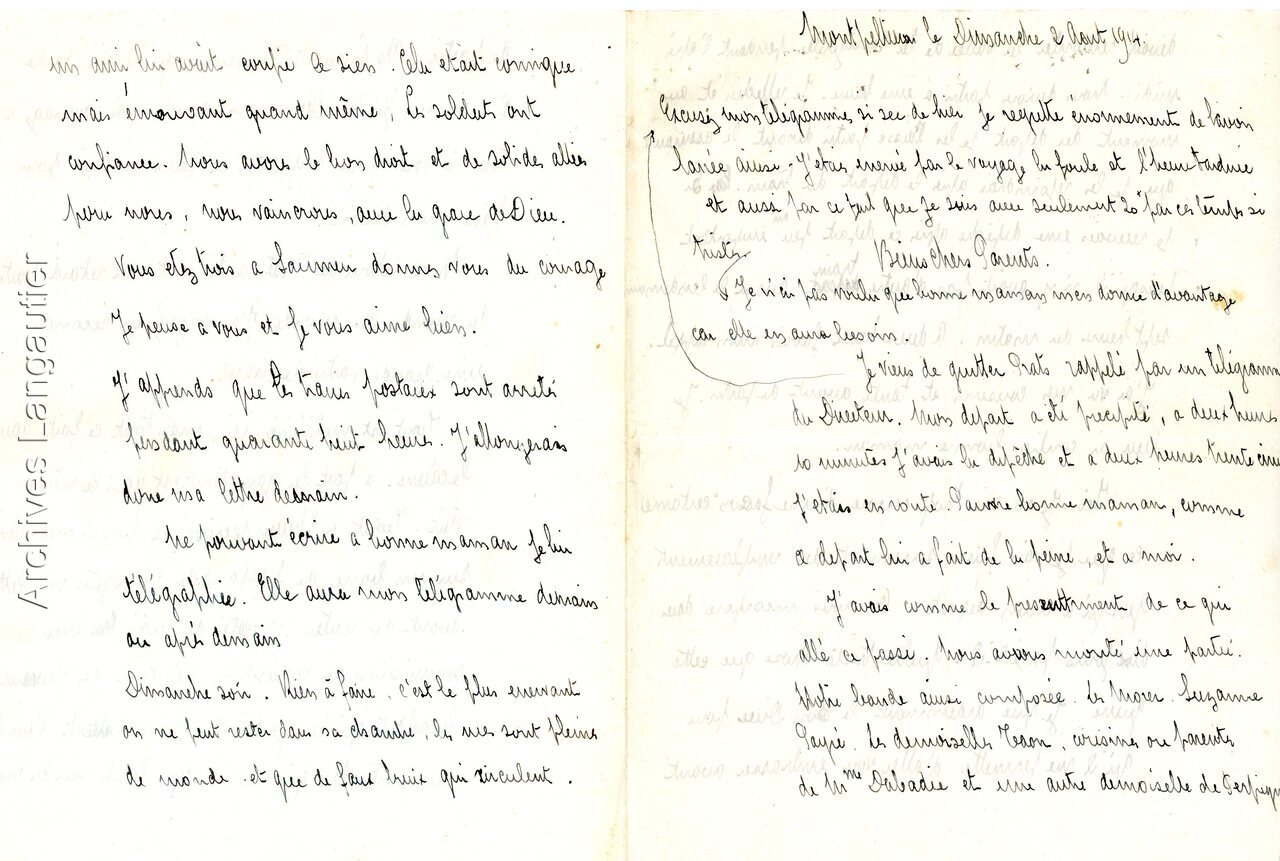 un ami lui avait confié le sien. Cela était comique
mais émouvant quand même, Les soldats ont
confiance. Nous avons le bon droit et de solides alliés
pour nous, nous vaincrons, avec la grace de Dieu.
Vous etez trois a Saumur donnez vous du courage
Je pense a vous et Je vous aime bien.
J'apprends que les trains postaux sont arretés
pendant quarante huit heures. J'allongerais
donc ma lettre demain.
Ne pouvant écrire a bonne maman Je lui
télégraphie. Elle aura mon télégramme demain
ou après demain
Dimanche soir. Rien a faire, c'est le plus enervant
on ne peut rester dans sa chambre, les rues sont pleines
de monde et que de faux bruix qui circulent.
Archives Langautier
Montpellier le Dimanche 2 Aout 1914.
Excusez mon télégramme si sec de hier Je regrette enormement de l'avoir
lancé ainsi. J'etais enervé par le voyage la foule et l'heure tardive
et aussi par ce fait que Je suis avec seulement 20 par ces temps si
tristes.
Bien Chers Parents.
Je n'ai pas voulu que bonne maman m'en donne d'avantage
car elle en aura besoin.
Je viens de quitter Prats rappelé par un télégramme
du Directeur. Mon depart a été precipité, a deux heures
10 minutes J'avais la dépêche et a deux heures trente cinq
J'etais en route. Pauvre bonne maman, comme
ce depart lui a fait de la peine, et a moi.
J'avais comme le pressentiment de ce qui
allé ce passé. Nous avions monté une partie.
Notre bande ainsi composée. les Noger. Suzanne
Payré. les demoiselles Traon, cousines ou parentes
de Mme Dabadie et une autre demoiselle de Perpignan